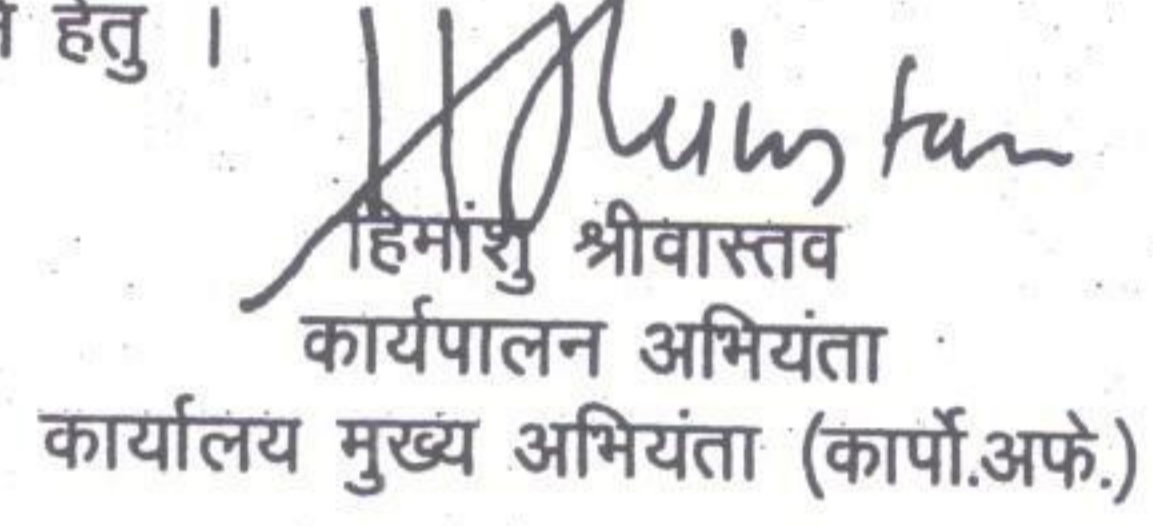 हेतु ।
हिमांशु श्रीवास्तव
कार्यपालन अभियंता
कार्यालय मुख्य अभियंता (कार्पो.अफे.)